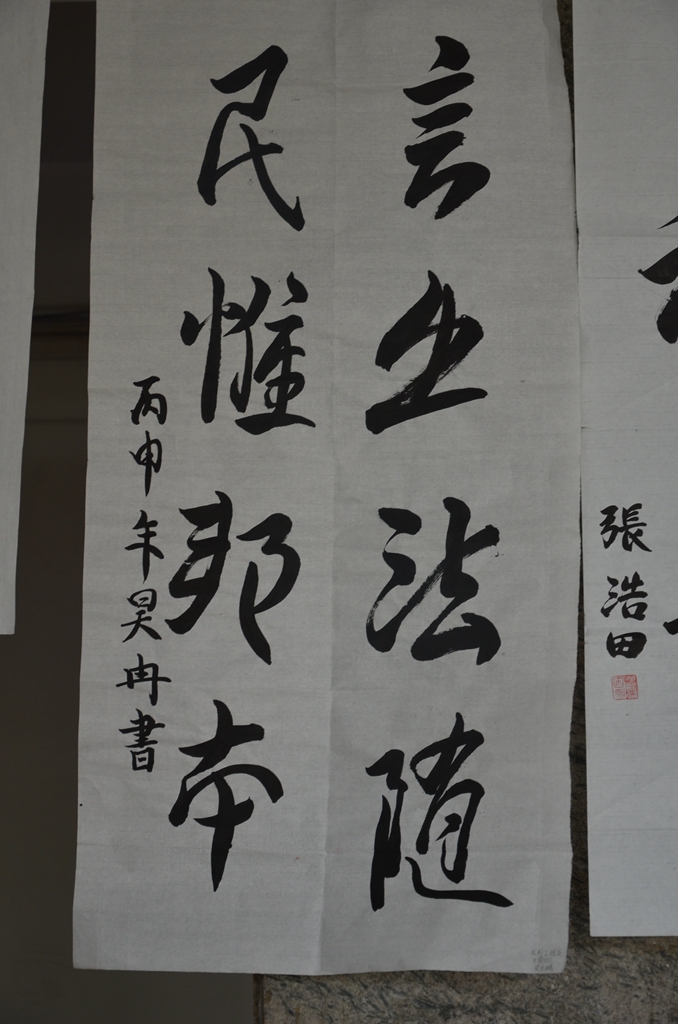 言出法随
民惟邦本
丙申年昊冉書
張浩田